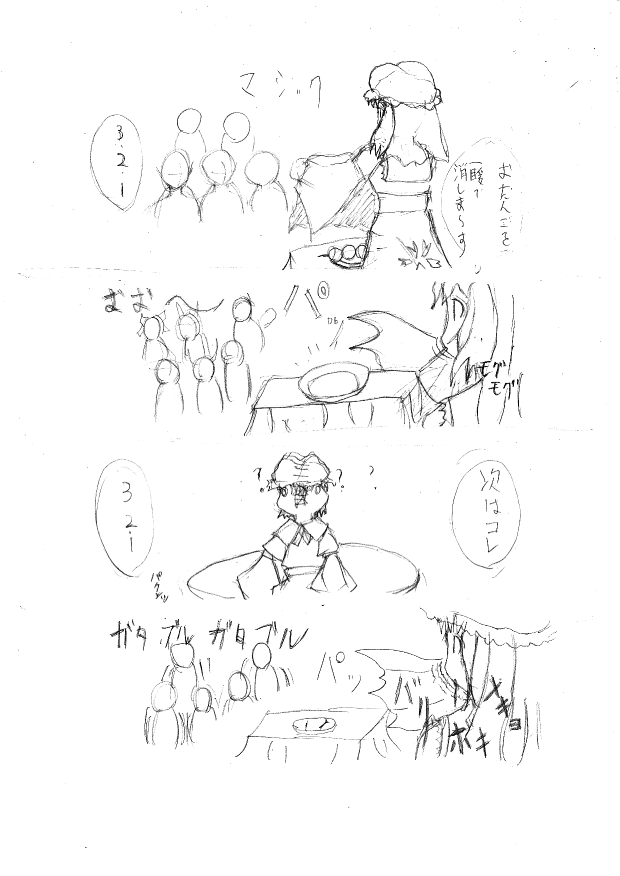 マジック
おだんごを
一瞬で
消しまーす
3.2.1
おおー
モグ
モグ
次はコレ
???
3 2 1
パクッ
ガタ ブル ガタ ブル
パッ
バリ
ボキ
メキョ